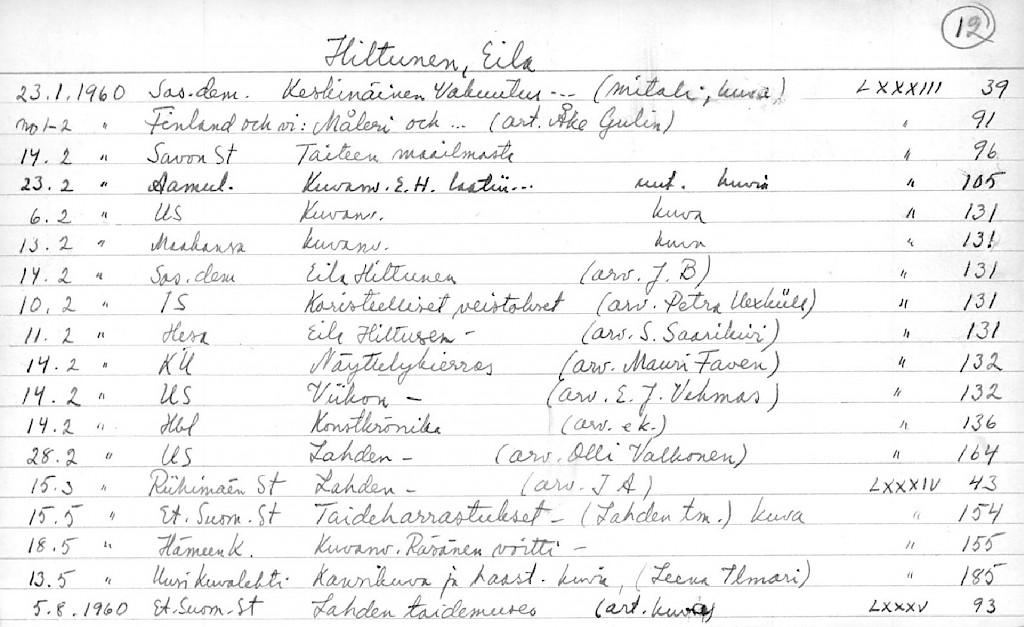 12
Hiltunen, Eila
23.1.1960 Sos.dem. Keskinäinen Vakuutus --- (mitali, kuva) LXXXIII 39
no 1-2 " Finland och vi: Måleri och ... (art. Åke Gulin) " 91
14.2 " Savon St Taiteen maailmasta " 96
23.2 " Aamul. Kuvanv. E.H. laatii --- uut. kuvia " 105
6.2 " US Kuvanv. kuva " 131
13.2 " Maakansa Kuvanv. kuva " 131
14.2 " Sos.dem Eila Hiltunen (arv. J. B) " 131
10.2 " IS Koristeelliset veistokset (arv. Petra Uexküll) " 131
11.2 " Hesa Eila Hiltusen - (arv. S. Saarikivi) " 131
14.2 " KU Näyttelykierros (arv. Mauri Favén) " 132
14.2 " US Viikon - (arv. E. J. Vehmas) " 132
14.2 " Hbl Konstkrönika (arv. ek.) " 136
28.2 " US Lahden - (arv. Olli Valkonen) " 164
15.3 " Riihimäen St Lahden - (arv. I A) LXXXIV 43
15.5 " Et. Suom. St Taideharrastukset - (Lahden tm.) kuva " 154
18.5 " Hämeen K. Kuvanv. Räsänen voitti - " 155
13.5 " Uusi Kuvalehti Kansikuva ja haast. kuvia, (Leena Ilmari) " 185
5.8.1960 Et.Suom.St Lahden taidemuseo (art. kuva) LXXXV 93